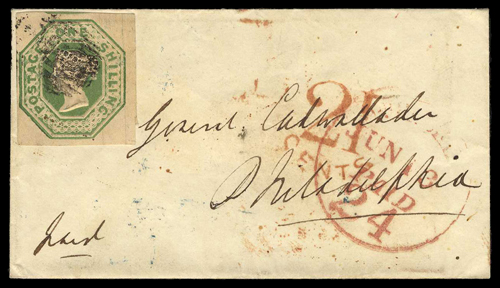 POSTAGE ONE SHILLING
General Cadwallader
Philadelphia
paid
21
JUN
CENTS
PAID
24